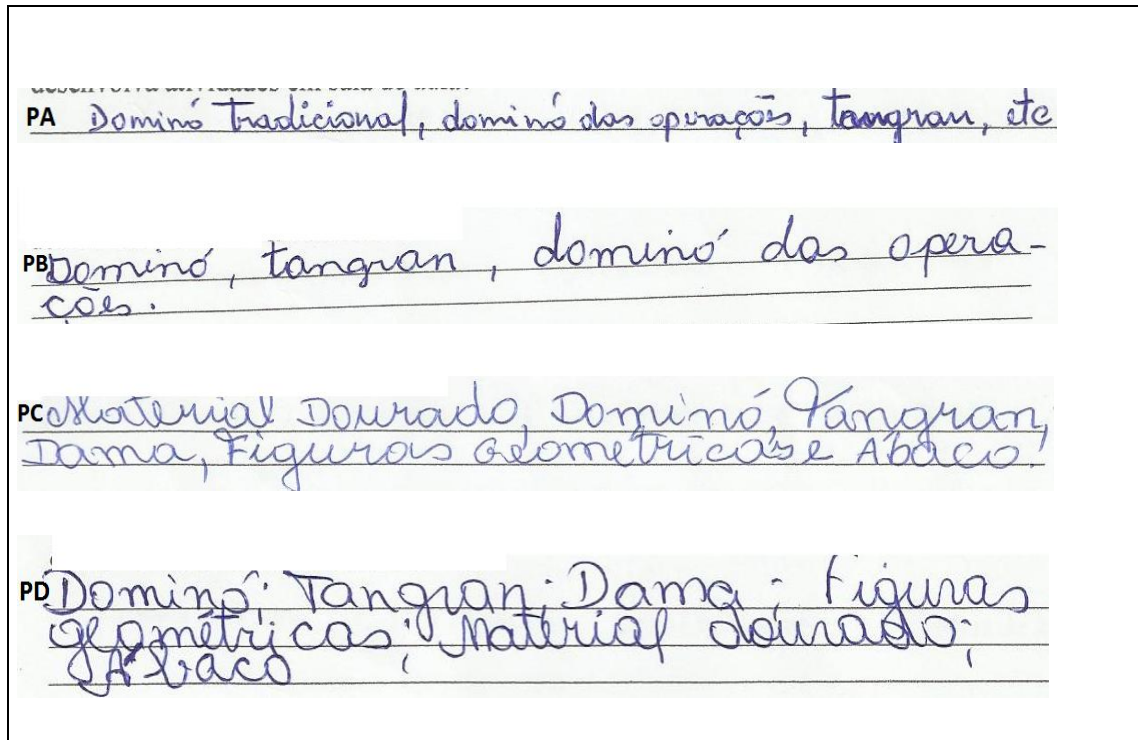 PA Dominó tradicional, dominó das operações, tangran, etc
PB Dominó, tangran, dominó das opera-
ções.
PC Material Dourado, Dominó, Tangran,
Dama, Figuras Geométricas e Ábaco.
PD Dominó; Tangran; Dama; Figuras
geométricas; Material dourado;
Ábaco